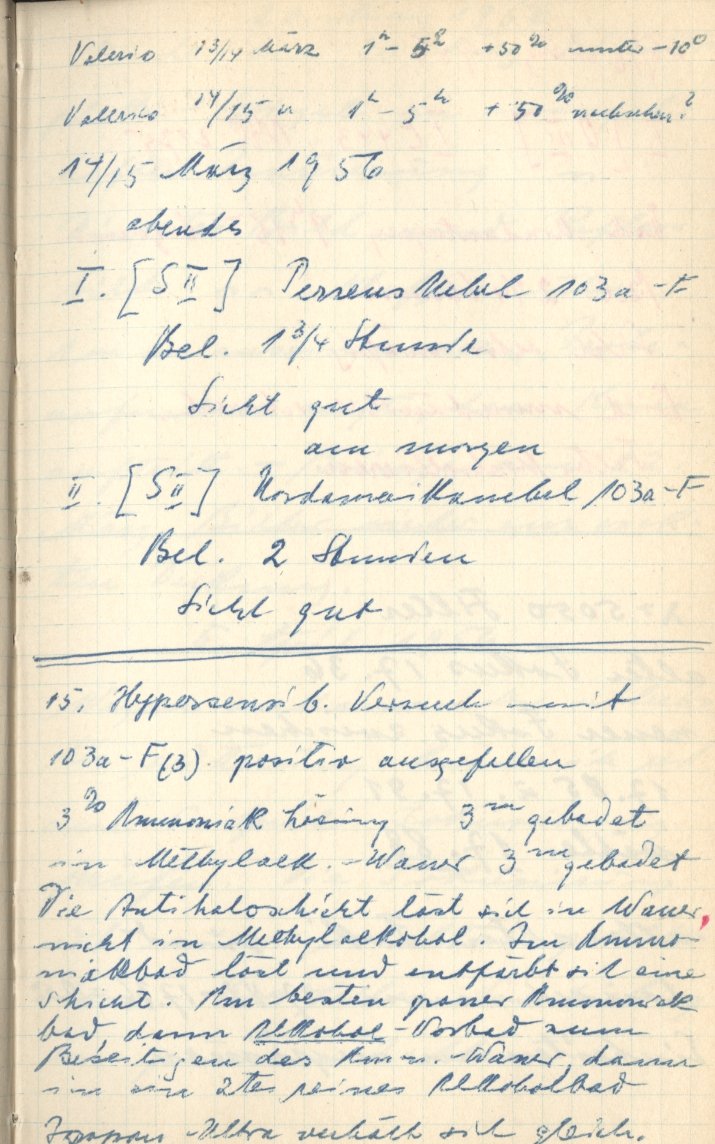 Valerio 13/14 März 1ʰ - 5ʰ +50% unter -10⁰
Valerio 14/15 " 1ʰ - 5ʰ + 50% nachsehen?
14/15 März 1956
abendes
I. [S II] Perseus Nebel 103a-F
Bel. 1 3/4 Stunde
Sicht gut
am morgen
II. [S II] Nordamerikanebel 103a-F
Bel. 2 Stunden
Sicht gut
15. Hypersensib. Versuch mit
103a-F(3). positiv ausgefallen
3% Ammoniak Lösung 3ᵐ gebadet
in Methylalk.-Wasser 3ᵐ gebadet
Die Antihaloschicht löst sich in Wasser,
nicht in Methylalkohol. Im Ammo-
niakbad löst und entfärbt sich eine
Schicht. Am besten Ammoniak
bad, dann Alkohol-Vorbad zum
Beseitigen des Amm.-Wasser, dann
in ein 2tes reines Alkoholbad
Isopan-Ultra verhält sich gleich.